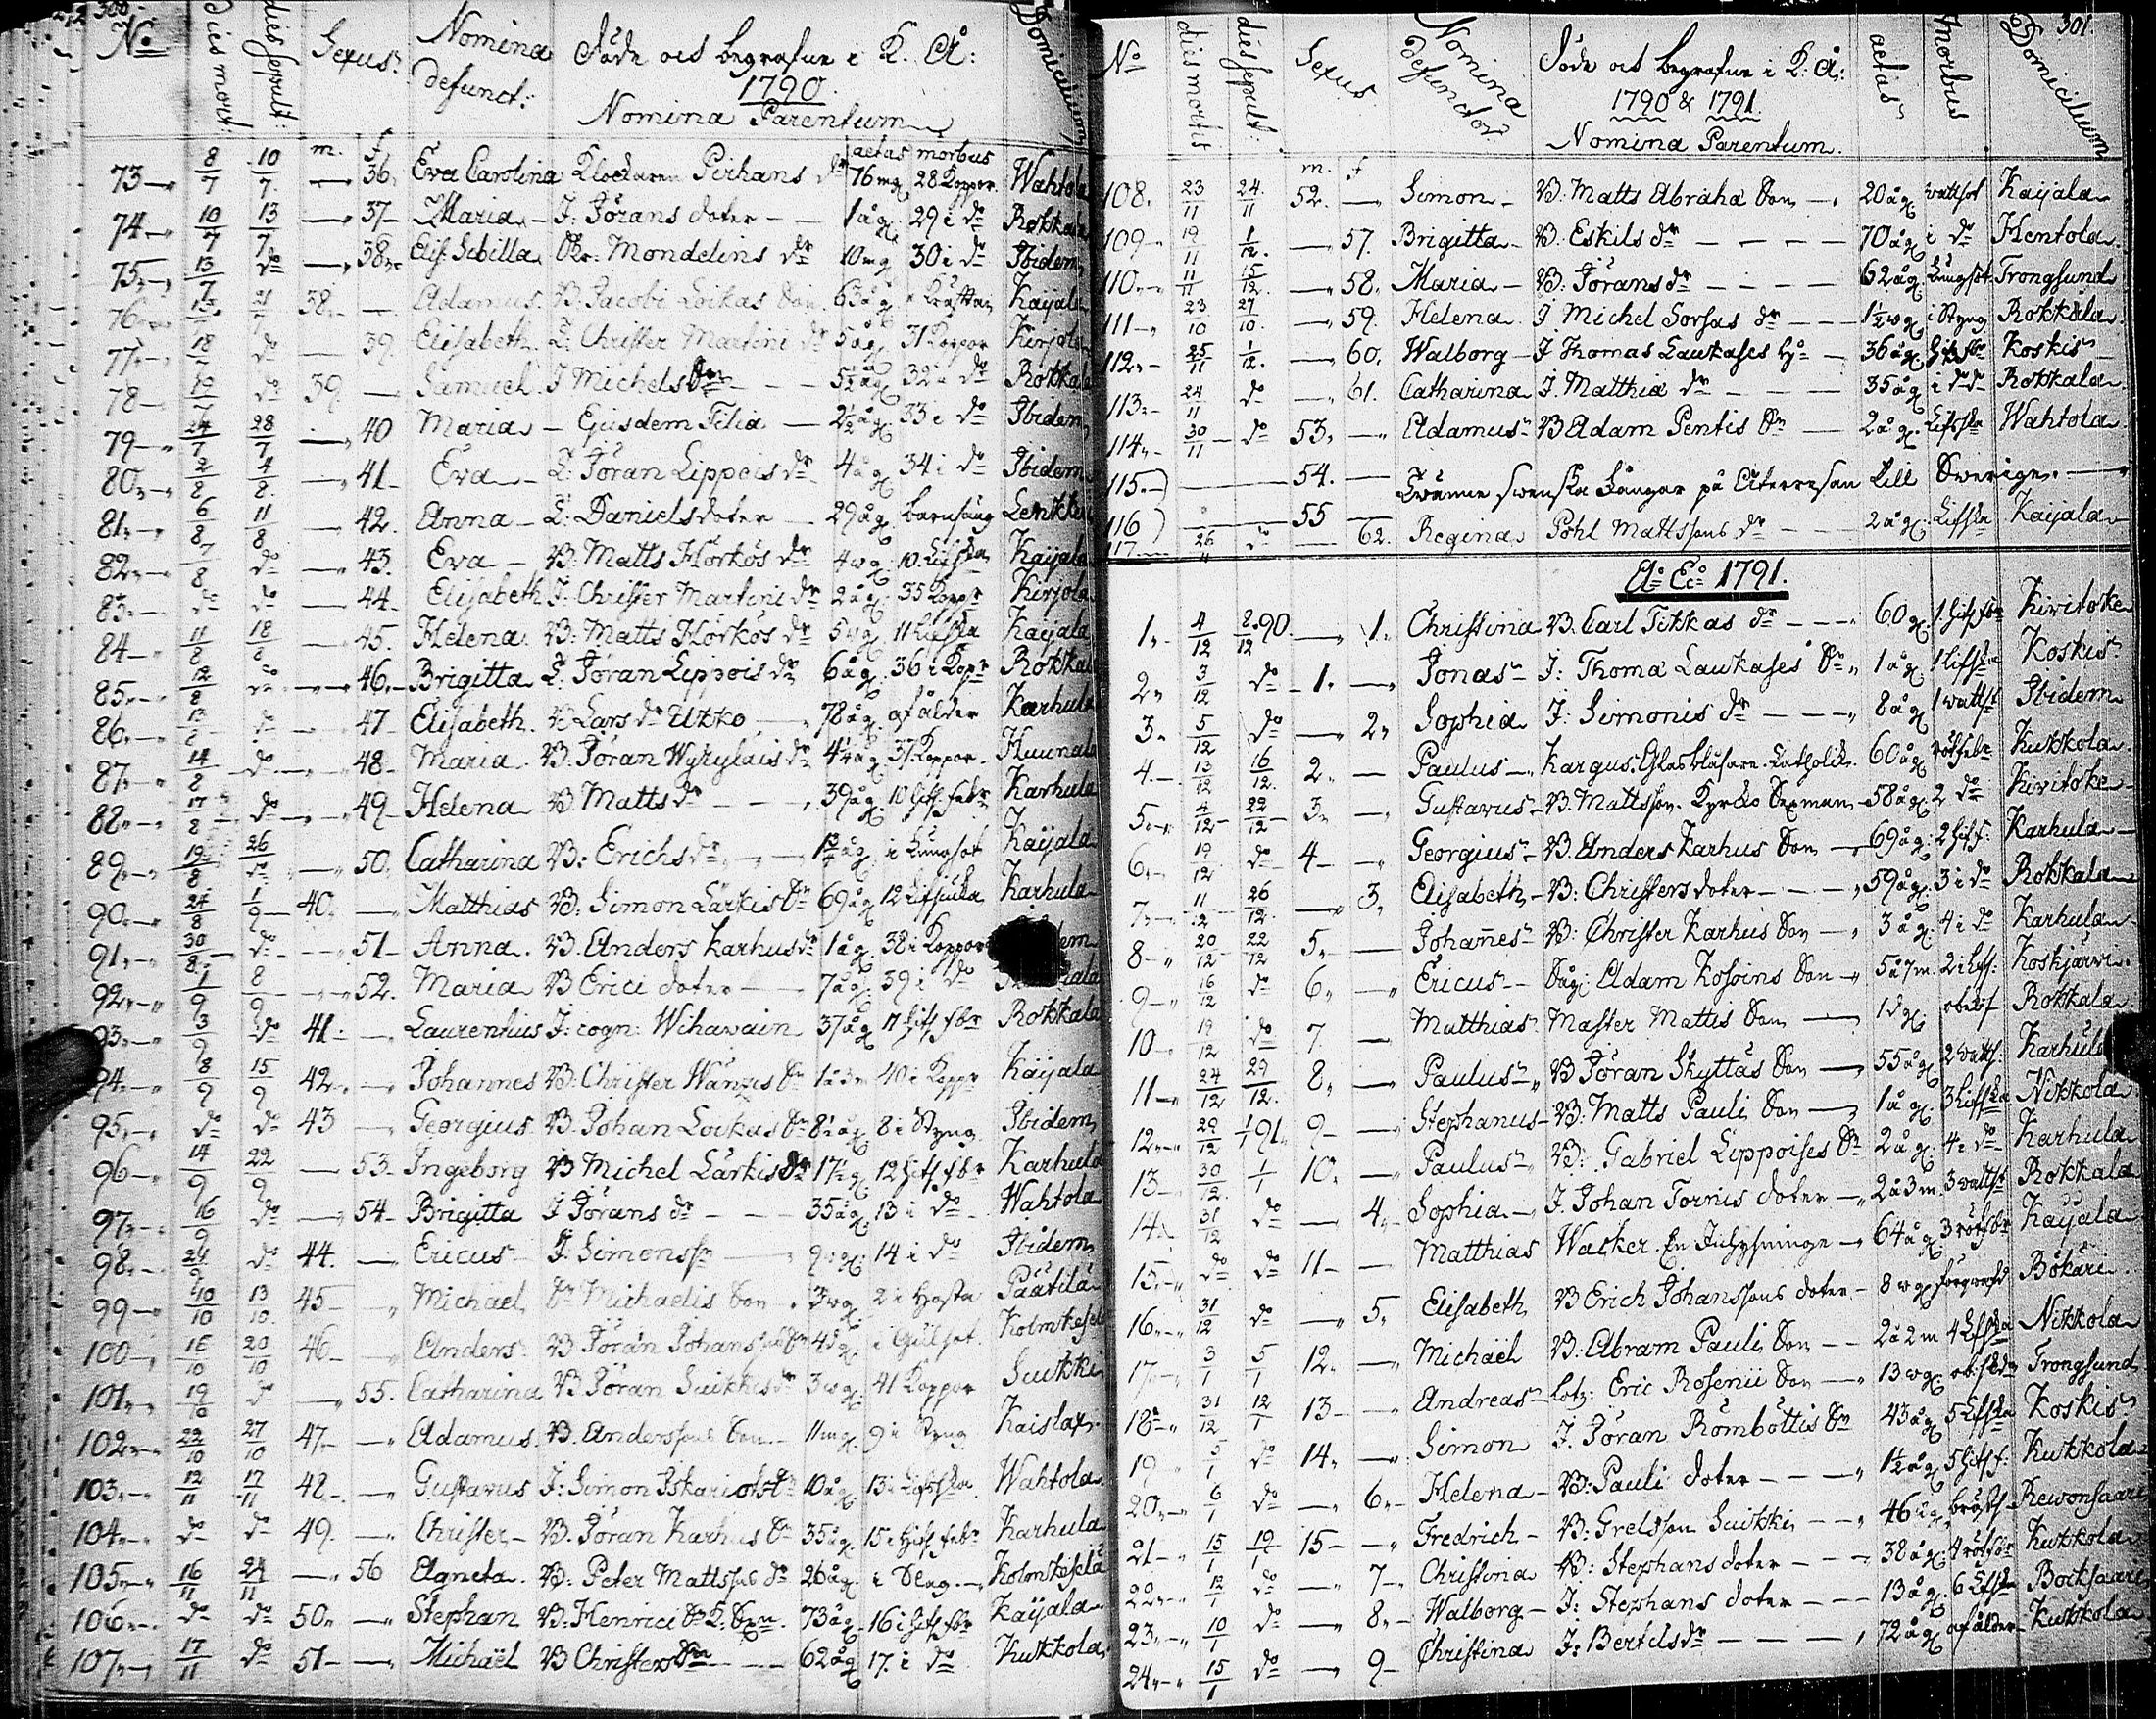 300.
No
Dies mort:
dies sepult:
Sexus
Nomina defunct:
Döde och begrafne i K. Å:
1790.
Nomina Parentum
Domicilium
m. f aetas morbus
73 8/7 10/7. 36. Eva Carolina Klockaren Pirhans dr 76 mg 28 Koppor. Wahtola
74 10/7 13/7 37 Maria J: Jörans doter 1 åg. 29 i do Rokkala
75 13/7 do 38 Elis. Sibilla Mondelins dr 10 mg 30 i do Ibidem
76 21/7 38. Adamus B. Jacobi Loikas Son 63 åg Kaijala
77 18/7 do 39. Elisabeth Christer Martini dr 5 åg 31 Koppor Kirjola
78 19/7 do 39. Samuel J Michels Son 5½ åg 32 i do Rokkala
79 24/7 28/7 40 Maria Ejusdem Filia 2½ åg. 33 i do Ibidem
80 2/8 4/8. 41 Eva Jöran Lippois dr 4 åg 34 i do Ibidem
81 6/8 11/8 42. Anna Daniels doter 29 åg. barnsäng
82 7/8 do 43. Eva B: Matts Hörkös dr 4 wg. 10. Lifska Kaijala
83 do do 44 Elisabeth J: Christer Martini dr 2 åg. 35 Koppr Kirjola
84 11/8 18/8 45. Helena. B: Matts Hörkös dr 5 wg. 11 Lifska Kaijala
85 12/8 do 46. Brigitta Jöran Lippois dr 6 åg. 36 i Kopr Rokkala
86 13/8 do 47 Elisabeth B Lars dr Ukko 78 åg. af ålder Karhula
87 14/8 do 48 Maria B. Jöran Wyrylais dr 4¼ åg 37. Koppor Huunala
88 17/8 do 49 Helena B Matts dr 39 åg. 10 hits. febr Karhula
89 19/8 26/8 50. Catharina B: Erichs dr i Lungsot Kaijala
90 24/8 1/9 40. Matthias B: Simon Lärkis Sn 69 åg 12 Lifsiuka Karhula
91 30/8. do 51 Anna. B Anders Karhus dr 1 åg. 38 i Koppor
92 1/9 8/9 52. Maria B Erici doter 7 åg 39 i do
93 3/9 do 41. Laurentius J: cogn: Wihavain 37 åg Rokkala
94. 8/9 15/9 42. Johannes B: Christer Wänzis Sn 1 å 3 m 40 i Koppr Kaijala
95. do do 43 Georgius B Johan Loikas Sn 8½ åg. 8 i Styng Ibidem
96 14/9 22/9 53. Ingeborg B Michel Lärkis dr 12 hits. fbr Karhula
97 16/9 do 54 Brigitta J Jörans dr 35 åg 13 i do Wahtola
98 24/9 do 44. Ericus J. Simonss: 14 i do Ibidem
99 10/10 13/10. 45 Michael Michaelis Son 3 wg. 2 i Hosta Päätilä
100 16/10 20/10 46 Anders B Jöran Johanss i Gulsot. Kolmikeselä
101 19/10 do 55. Catharina B Jöran Suikkis dr 3 wg. 41 Koppor Suikki
102 22/10 27/10 47 Adamus B. Anderssons Son 11 mg. 9 i Styng Kaislax.
103 12/11 17/11 48 Gustavus J: Simon Iskariots Sn 10 åg 13 i Lifska Wahtola
104 do do 49. Christer B. Jöran Karhus Sn 35 åg. 15 i hits. febr Karhula
105 16/11 24/11 56 Agneta. B: Peter Mattsons dr 26 åg. i Slag. Kolmikeselä
106 do do 50 Stephan B: Henrici Sn 73 åg. 16 i hits. fbr Kaijala
107 17/11 do 51 Michael B Christers Son 62 åg 17. i do Kukkola
301.
No
dies mortis
dies sepult:
Sexus
Nomina defunctor
Döde och begrafne i K: Å:
1790 & 1791
Nomina Parentum.
aetas
Morbus
Domicilium
m. f
108. 23/11 24./11 52. Simon B: Matts Abraha Son 20 åg. wattsot Kaijala
109 19/11 1/12. 57. Brigitta B. Eskils dr 70 åg. i do Hentola.
110 11/11 15/12. 58. Maria B: Jörans dr 62 åg. Lungsot. Trongsund
111 23/10 27/10. 59. Helena J Michel Sorsas dr 1½ wg. i Styng Rokkala
112 25/11 1/12. 60. Walborg J Thomas Laukases 36 åg. Koskis
113 24/11 do 61. Catharina J. Matthia dr 35 åg i do Rokkala
114 30/11 do 53. Adamus B Adam Pentis Sn 2 åg. Lifska Wahtola
115. 54. Tvänne svenska Fångar på Återresan till Sverige.
116 55
117 26/11 do 62. Regina Pohl Mattssons dr 2 åg. Lifska Kaijala
Ao Eo 1791.
1. 4/12 2/12 90. 1. Christina B. Carl Tikkas dr 60 g. 1. hits. fbr Kivitoke
2 3/12 do 1. Jonas J: Thoma Laukases Sn 1 åg. 1 Lifska Koskis
3. 5/12 do 2 Sophia J: Simonis dr 8 åg 1 watts: Ibidem
4. 13/12 16/12. 2. Paulus Kargus. Glasblåsare. Katholik. 60 åg rötfebr Kukkola.
5. 4/12 22/12 3. Gustavus B. Mattsson. Kyrcko Sexman 58 åg. 2 do Kivitoke
6 19/12 do 4 Georgius B. Anders Karhus Son 69 åg. 2 hits. Karhula
7 11/12 26/12. 3. Elisabeth B: Christers doter 59 åg. 3 i do Rokkala
8 20/12 22/12 5. Johannes B: Christer Karhus Son 3 åg. 4 i do Karhula
9 16/12 do 6. Ericus Adam Kosoins Son 5 å 7 m. 2 i hits: Koskjärvi
10 19/12 do 7. Matthias Master Mattis Son 1 dg. Rokkala
11 24/12 29/12. 8. Paulus B Jöran Skyttäs Son 55 åg. 2 watts. Karhula
12 29/12 1/1 91. 9 Stephanus B. Matts Pauli Son 1 åg. 3 Lifska. Nikkola
13 30/12. 1/1 10. Paulus B: Gabriel Lippoises Sn 2 åg. 4 i do Karhula
14 31/12 do 4. Sophia J. Johan Tornis doter 2 å 3 m 3 watts Rokkala
15 do do 11 Matthias Wacker. En 64 åg 3 rötfbr Kaijala
16 31/12 do 5. Elisabeth B Erich Johanssons doter 8 wg. Bökäri
17 3/1 5/1 12. Michaël B: Abram Pauli Son 2 å 2 m 4 Lifska Nikkola
18 31/12 12/1 13 Andreas Lotz: Eric Rosenii Son 13 wg. Trongsund
19 5/1 do 14. Simon J. Jöran Römböttis Sn 43 åg. 5 Lifska Koskis
20 6/1 do 6 Helena B: Pauli doter 1½ åg 5 hits f: Kukkola
21 15/1 19/1 15 Fredrich B: Grelsson Suikki 46 åg. bröst. Rewonsaari
22 12/1 do 7 Christina B: Stephans doter 38 åg. 4 rötfbr Kukkola
23 10/1 do 8. Walborg J: Stephans doter 13 åg. 6 Lifska Bocksaari
24 15/1 do 9 Christina J: Bertils dr 72 åg. af ålder Kukkola